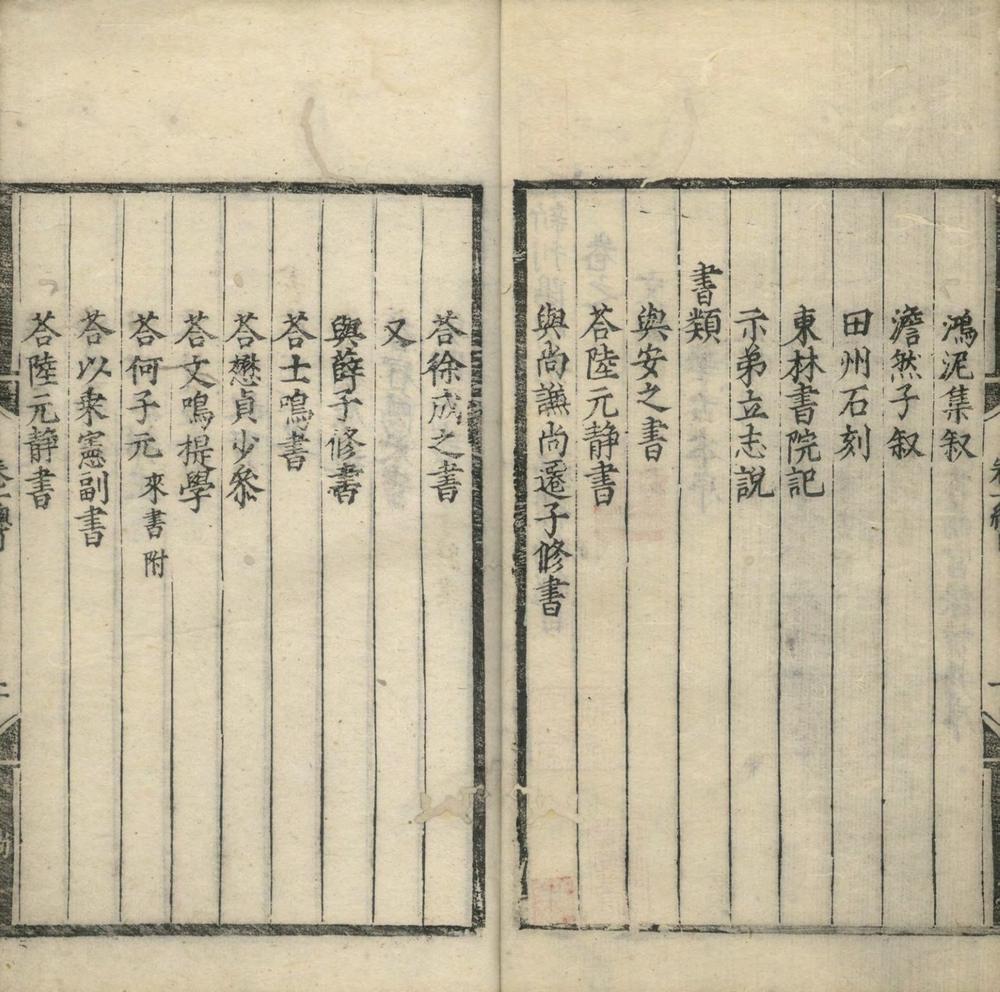 鴻泥集叙
澹然子叙
田州石刻
東林書院記
示弟立志說
書類
與安之書
荅陸元静書
與尚謙尚遷子修書
荅徐成之書
又
與薛子修書
荅士鳴書
荅懋貞少叅
荅文鳴提學
荅何子元 來書附
荅以乘憲副書
荅陸元静書